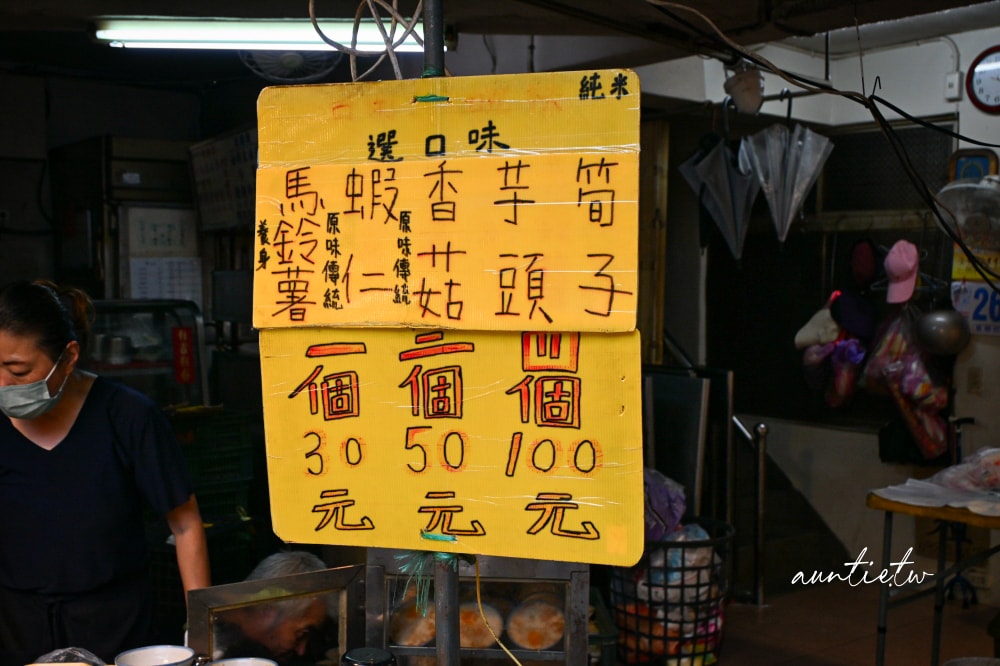 純米
選口味
筒子
芋頭
香菇
原味傳統
蝦仁
原味傳統
馬鈴薯
養身
一個
30
元
二個
50
元
四個
100
元
auntietw